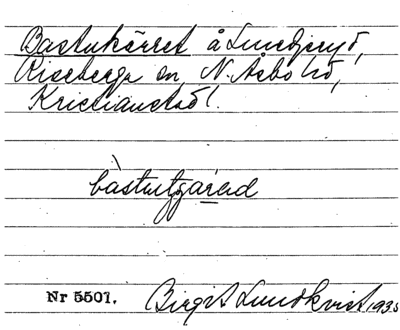 Bastukärret å Ljungbyryd,
Riseberga sn, N. Åsbo hd,
Kristianstad l.
Nr 5501. Birgit Lundkvist 1935